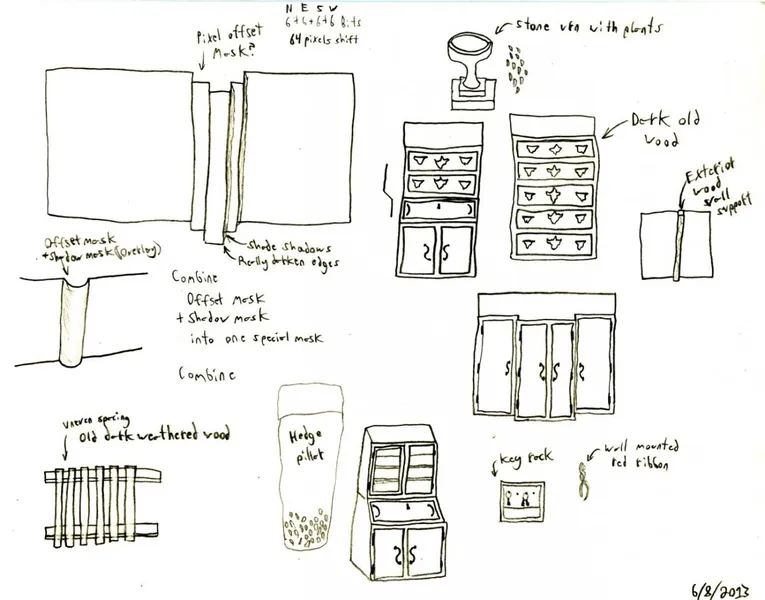 N E S W
6+6+6+6 Bits
64 pixels shift
Pixel offset
Mask?
stone urn with plants
Dark old
wood
Exterior
wood
wall
support
Offset mask
+Shadow mask (Overlay)
Shade shadows
Really darken edges
Combine
Offset mask
+ Shadow mask
into one special mask
Combine
uneven spacing
Old dark weathered wood
Hedge
pillar
key rack
wall mounted
red ribbon
6/8/2013